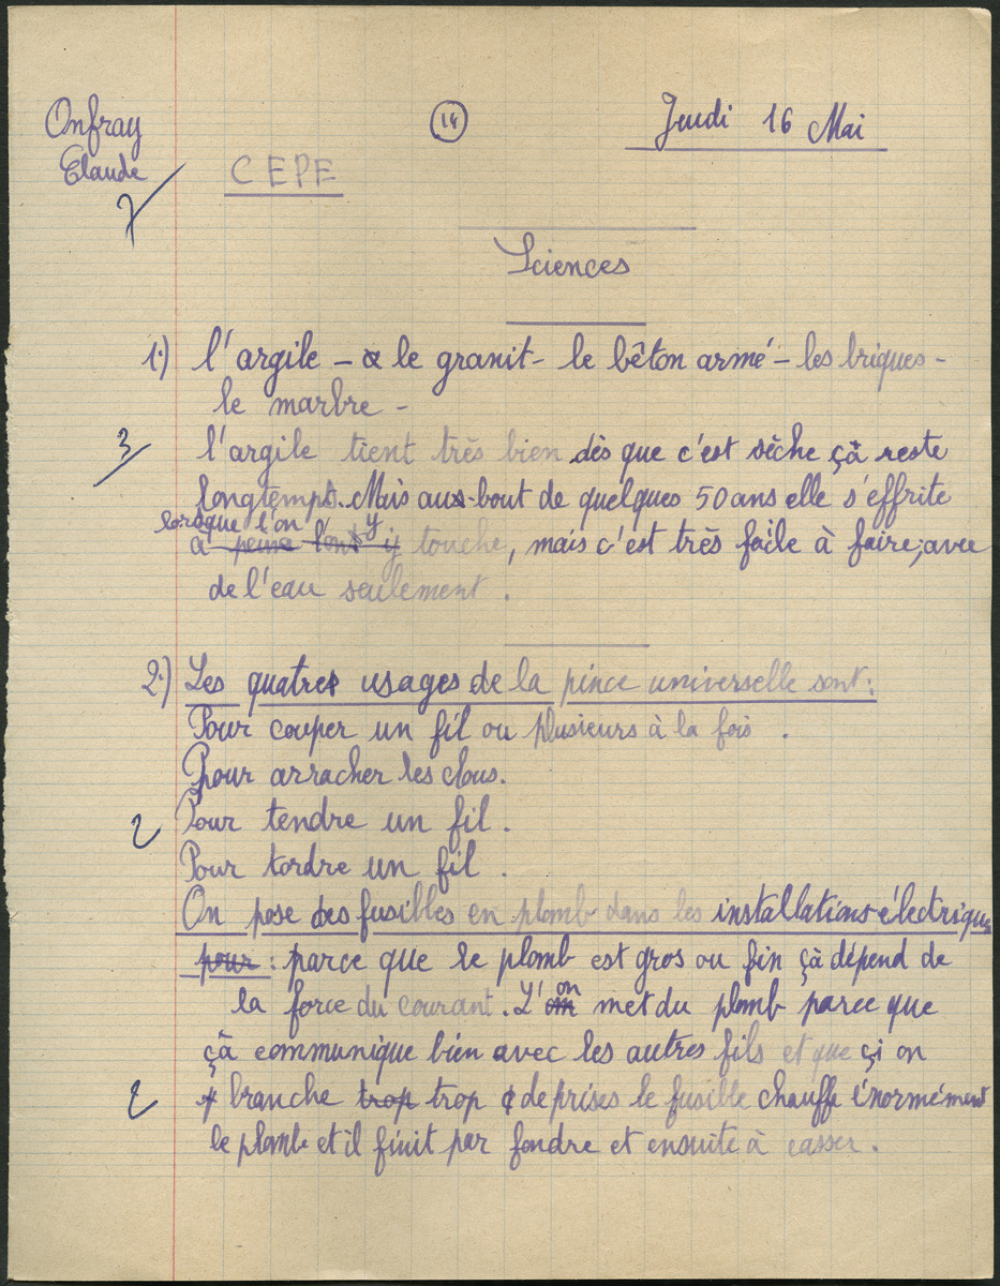 Onfray
Claude
14
Jeudi 16 Mai
7
CEPE
Sciences
1°) l'argile - le granit - le bêton armé - les briques -
le marbre -
3
l'argile tient très bien dès que c'est sèche çà reste
longtemps. Mais aux bout de quelques 50 ans elle s'effrite
lorsque l'on y
à peine l'ont y touche, mais c'est très facile à faire; avec
de l'eau seulement.
2°) Les quatres usages de la pince universelle sont:
Pour couper un fil ou plusieurs à la fois.
Pour arracher les clous.
2 Pour tendre un fil.
Pour tordre un fil.
On pose des fusibles en plomb dans les installations électriques
pour : parce que le plomb est gros ou fin çà dépend de
la force du courant. L'on met du plomb parce que
çà communique bien avec les autres fils et que çi on
2 branche trop trop de prises le fusible chauffe énormément
le plomb et il finit par fondre et ensuite à casser.